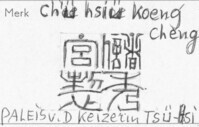 Merk Chüü hsiü Koeng
Cheng
儲秀
宮製
PALEIS v. D Keizerin Tsü-Hsi